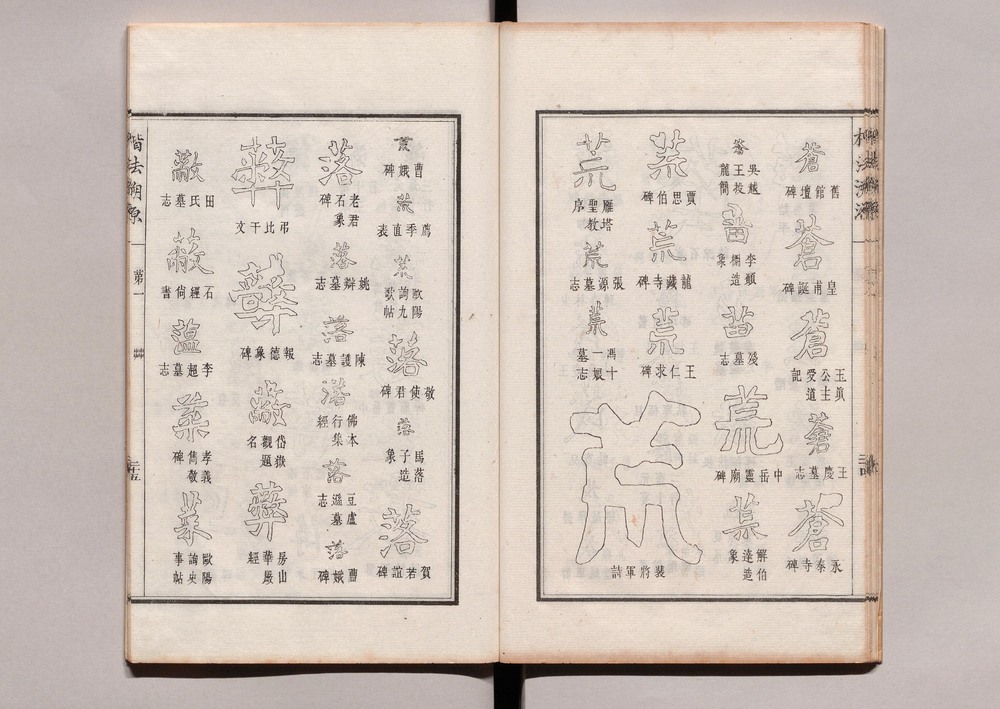 蒼
舊館壇碑
蒼
皇甫誕碑
蒼
玉真公主受道記
蒼
王慶墓志
蒼
永泰寺碑
吳越王投龍簡
李顯造象
苗
墓志
荒
中岳靈廟碑
荒
解伯達造象
荒
賈思伯碑
荒
龍藏寺碑
荒
王仁求碑
荒
裴將軍詩
荒
雁塔聖教序
荒
張源墓志
荒
馮十一娘墓志
荒
曹娥碑
荒
薦季直表
荒
歐陽詢九歌帖
落
敬使君碑
落
馬落子造象
落
賀若誼碑
落
老君石象碑
落
姚辯墓志
落
陳護墓志
落
佛本行集經
落
豆盧遜墓志
落
曹娥碑
弔比干文
報德象碑
蔽
岱嶽觀題名
房山華嚴經
蔽
田氏墓志
蔽
石經尚書
薀
李超墓志
菜
孝義雋敬碑
菜
歐陽詢史事帖
楷法溯源
第一
艸
二十五